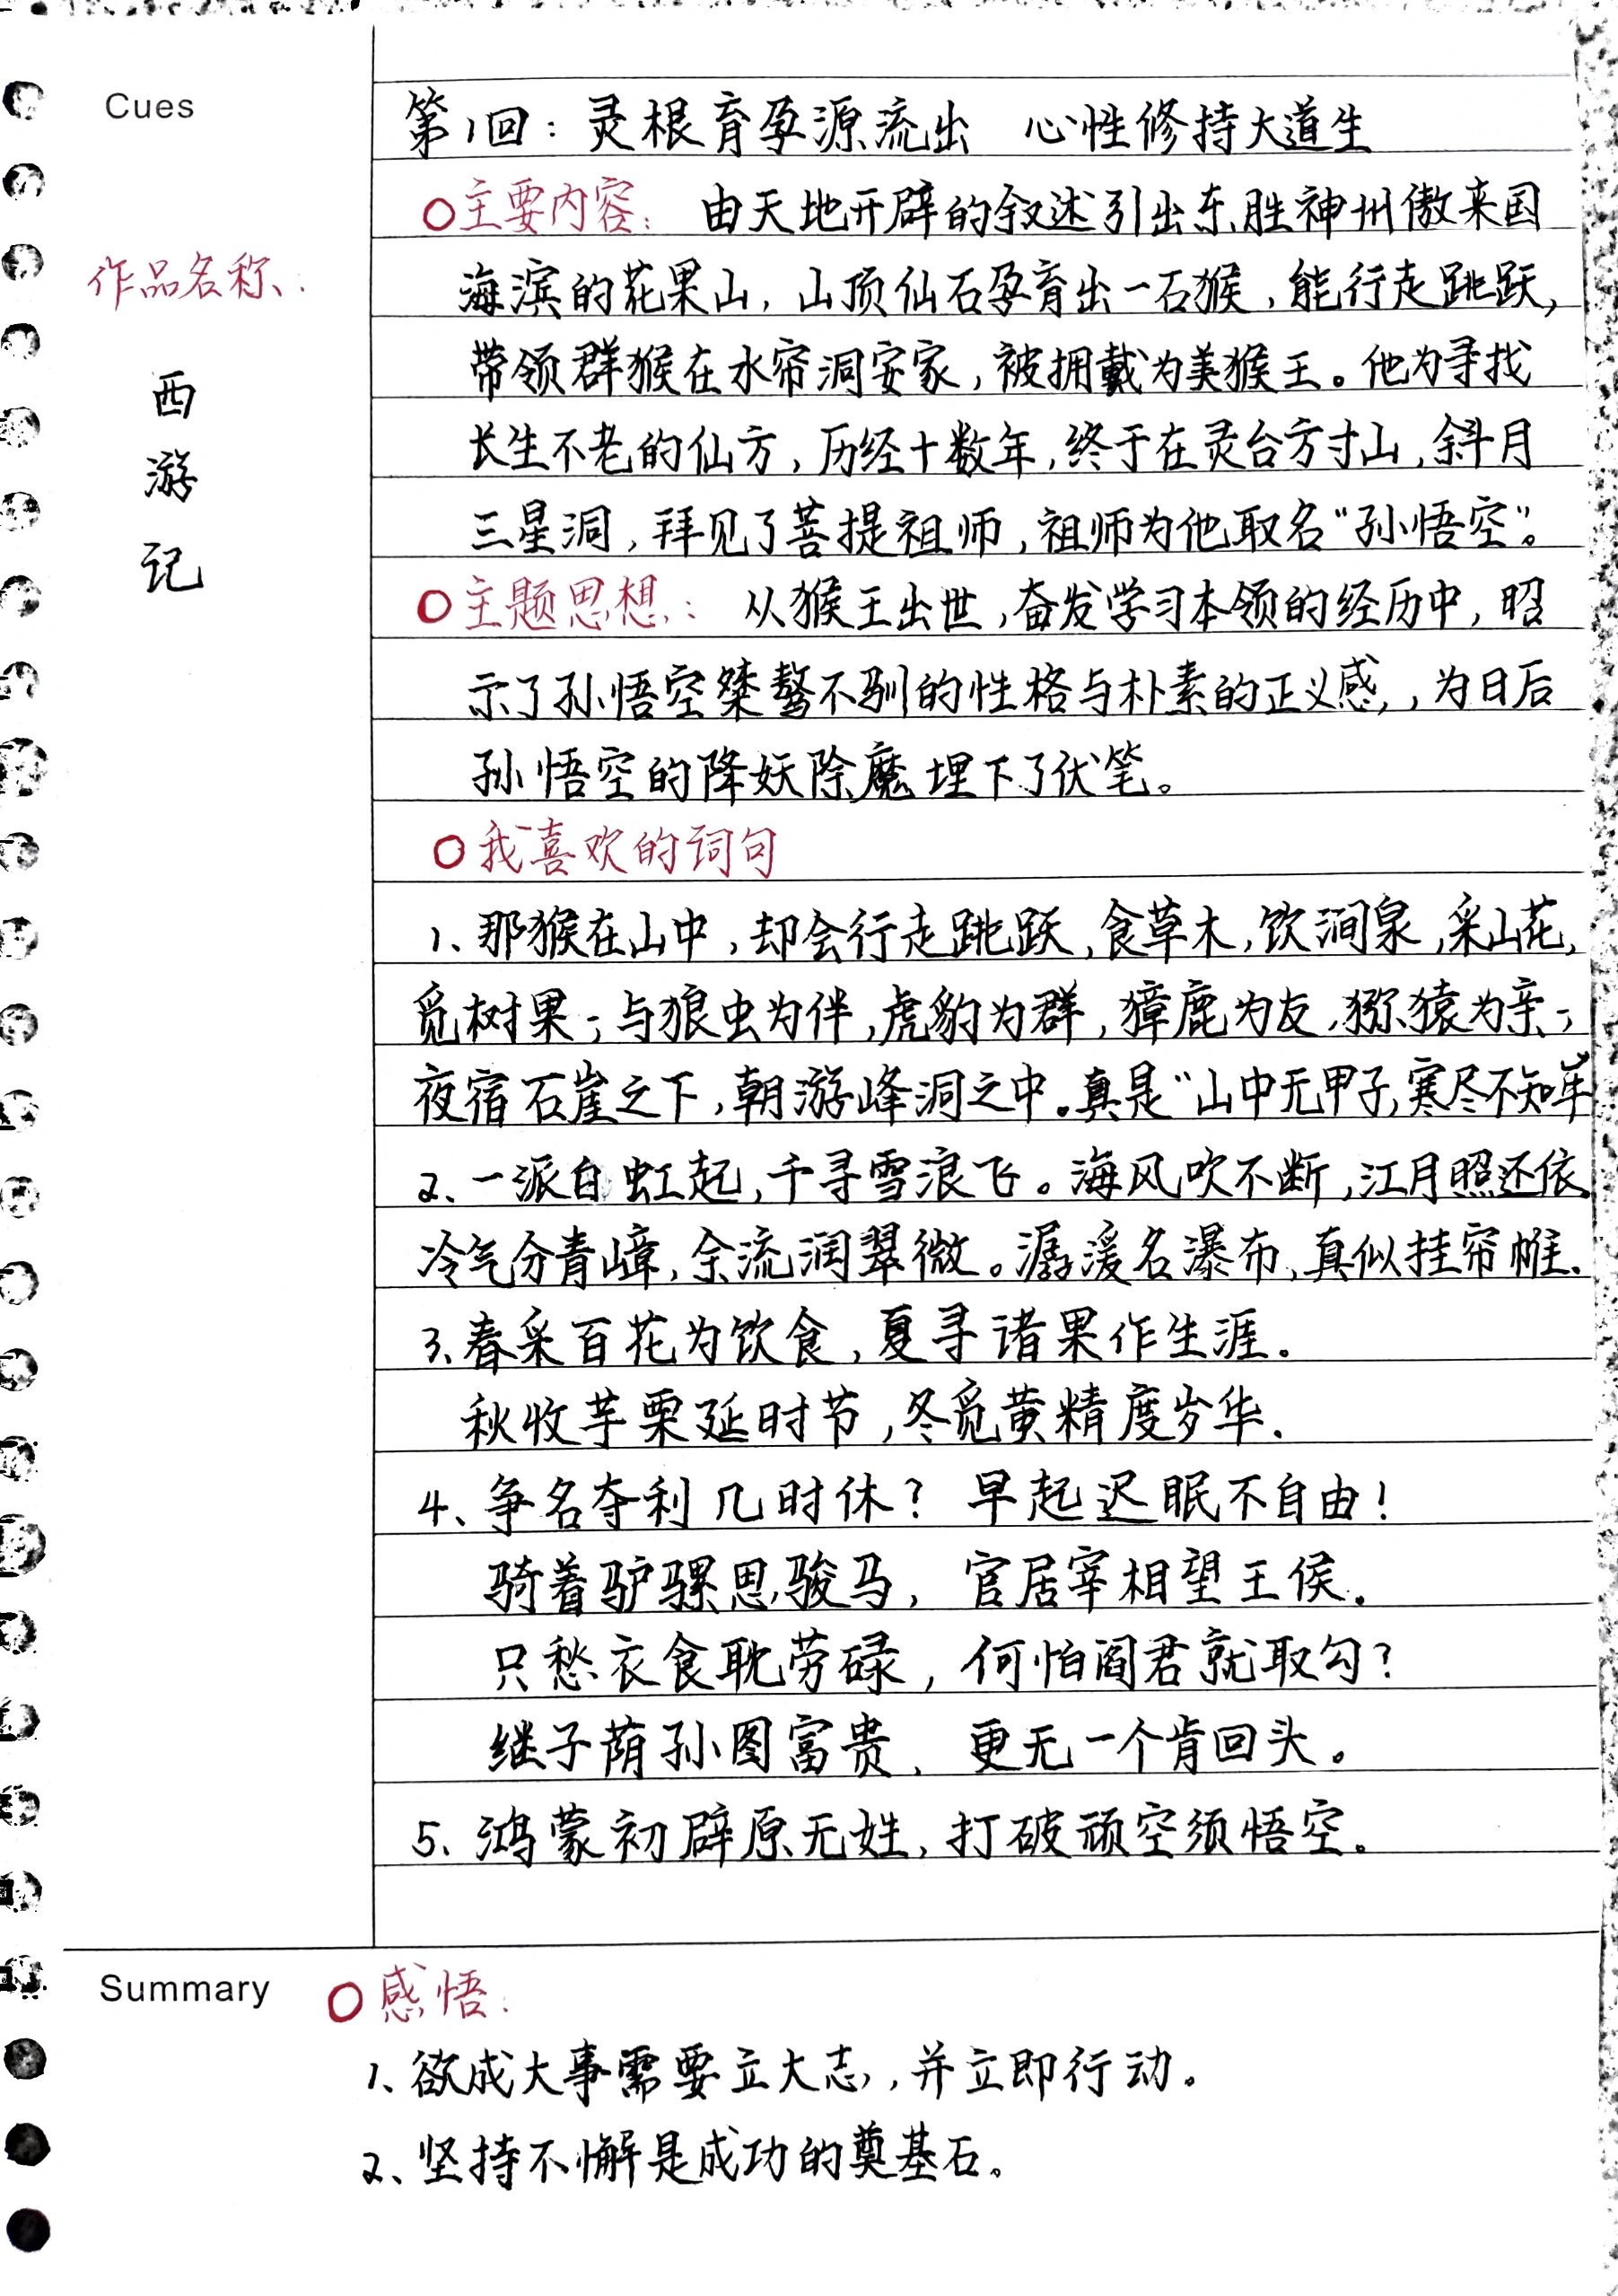 Cues
作品名称:
西
游
记
第1回：灵根育孕源流出 心性修持大道生
主要内容： 由天地开辟的叙述引出东胜神州傲来国
海滨的花果山，山顶仙石孕育出一石猴，能行走跳跃，
带领群猴在水帘洞安家，被拥戴为美猴王。他为寻找
长生不老的仙方，历经十数年，终于在灵台方寸山，斜月
三星洞，拜见了菩提祖师，祖师为他取名“孙悟空”。
主题思想： 从猴王出世，奋发学习本领的经历中，昭
示了孙悟空桀骜不驯的性格与朴素的正义感，为日后
孙悟空的降妖除魔埋下了伏笔。
我喜欢的词句
1、那猴在山中，却会行走跳跃，食草木，饮涧泉，采山花，
觅树果；与狼虫为伴，虎豹为群，獐鹿为友，猕猿为亲；
夜宿石崖之下，朝游峰洞之中。真是“山中无甲子，寒尽不知年
2、一派白虹起，千寻雪浪飞。海风吹不断，江月照还依
冷气分青嶂，余流润翠微。潺湲名瀑布，真似挂帘帷.
3、春采百花为饮食，夏寻诸果作生涯.
秋收芋栗延时节，冬觅黄精度岁华.
4、争名夺利几时休？ 早起迟眠不自由！
骑着驴骡思骏马， 官居宰相望王侯.
只愁衣食耽劳碌， 何怕阎君就取勾？
继子荫孙图富贵、 更无一个肯回头。
5、鸿蒙初辟原无姓，打破顽空须悟空。
Summary
感悟：
1、欲成大事需要立大志，并立即行动。
2、坚持不懈是成功的奠基石。